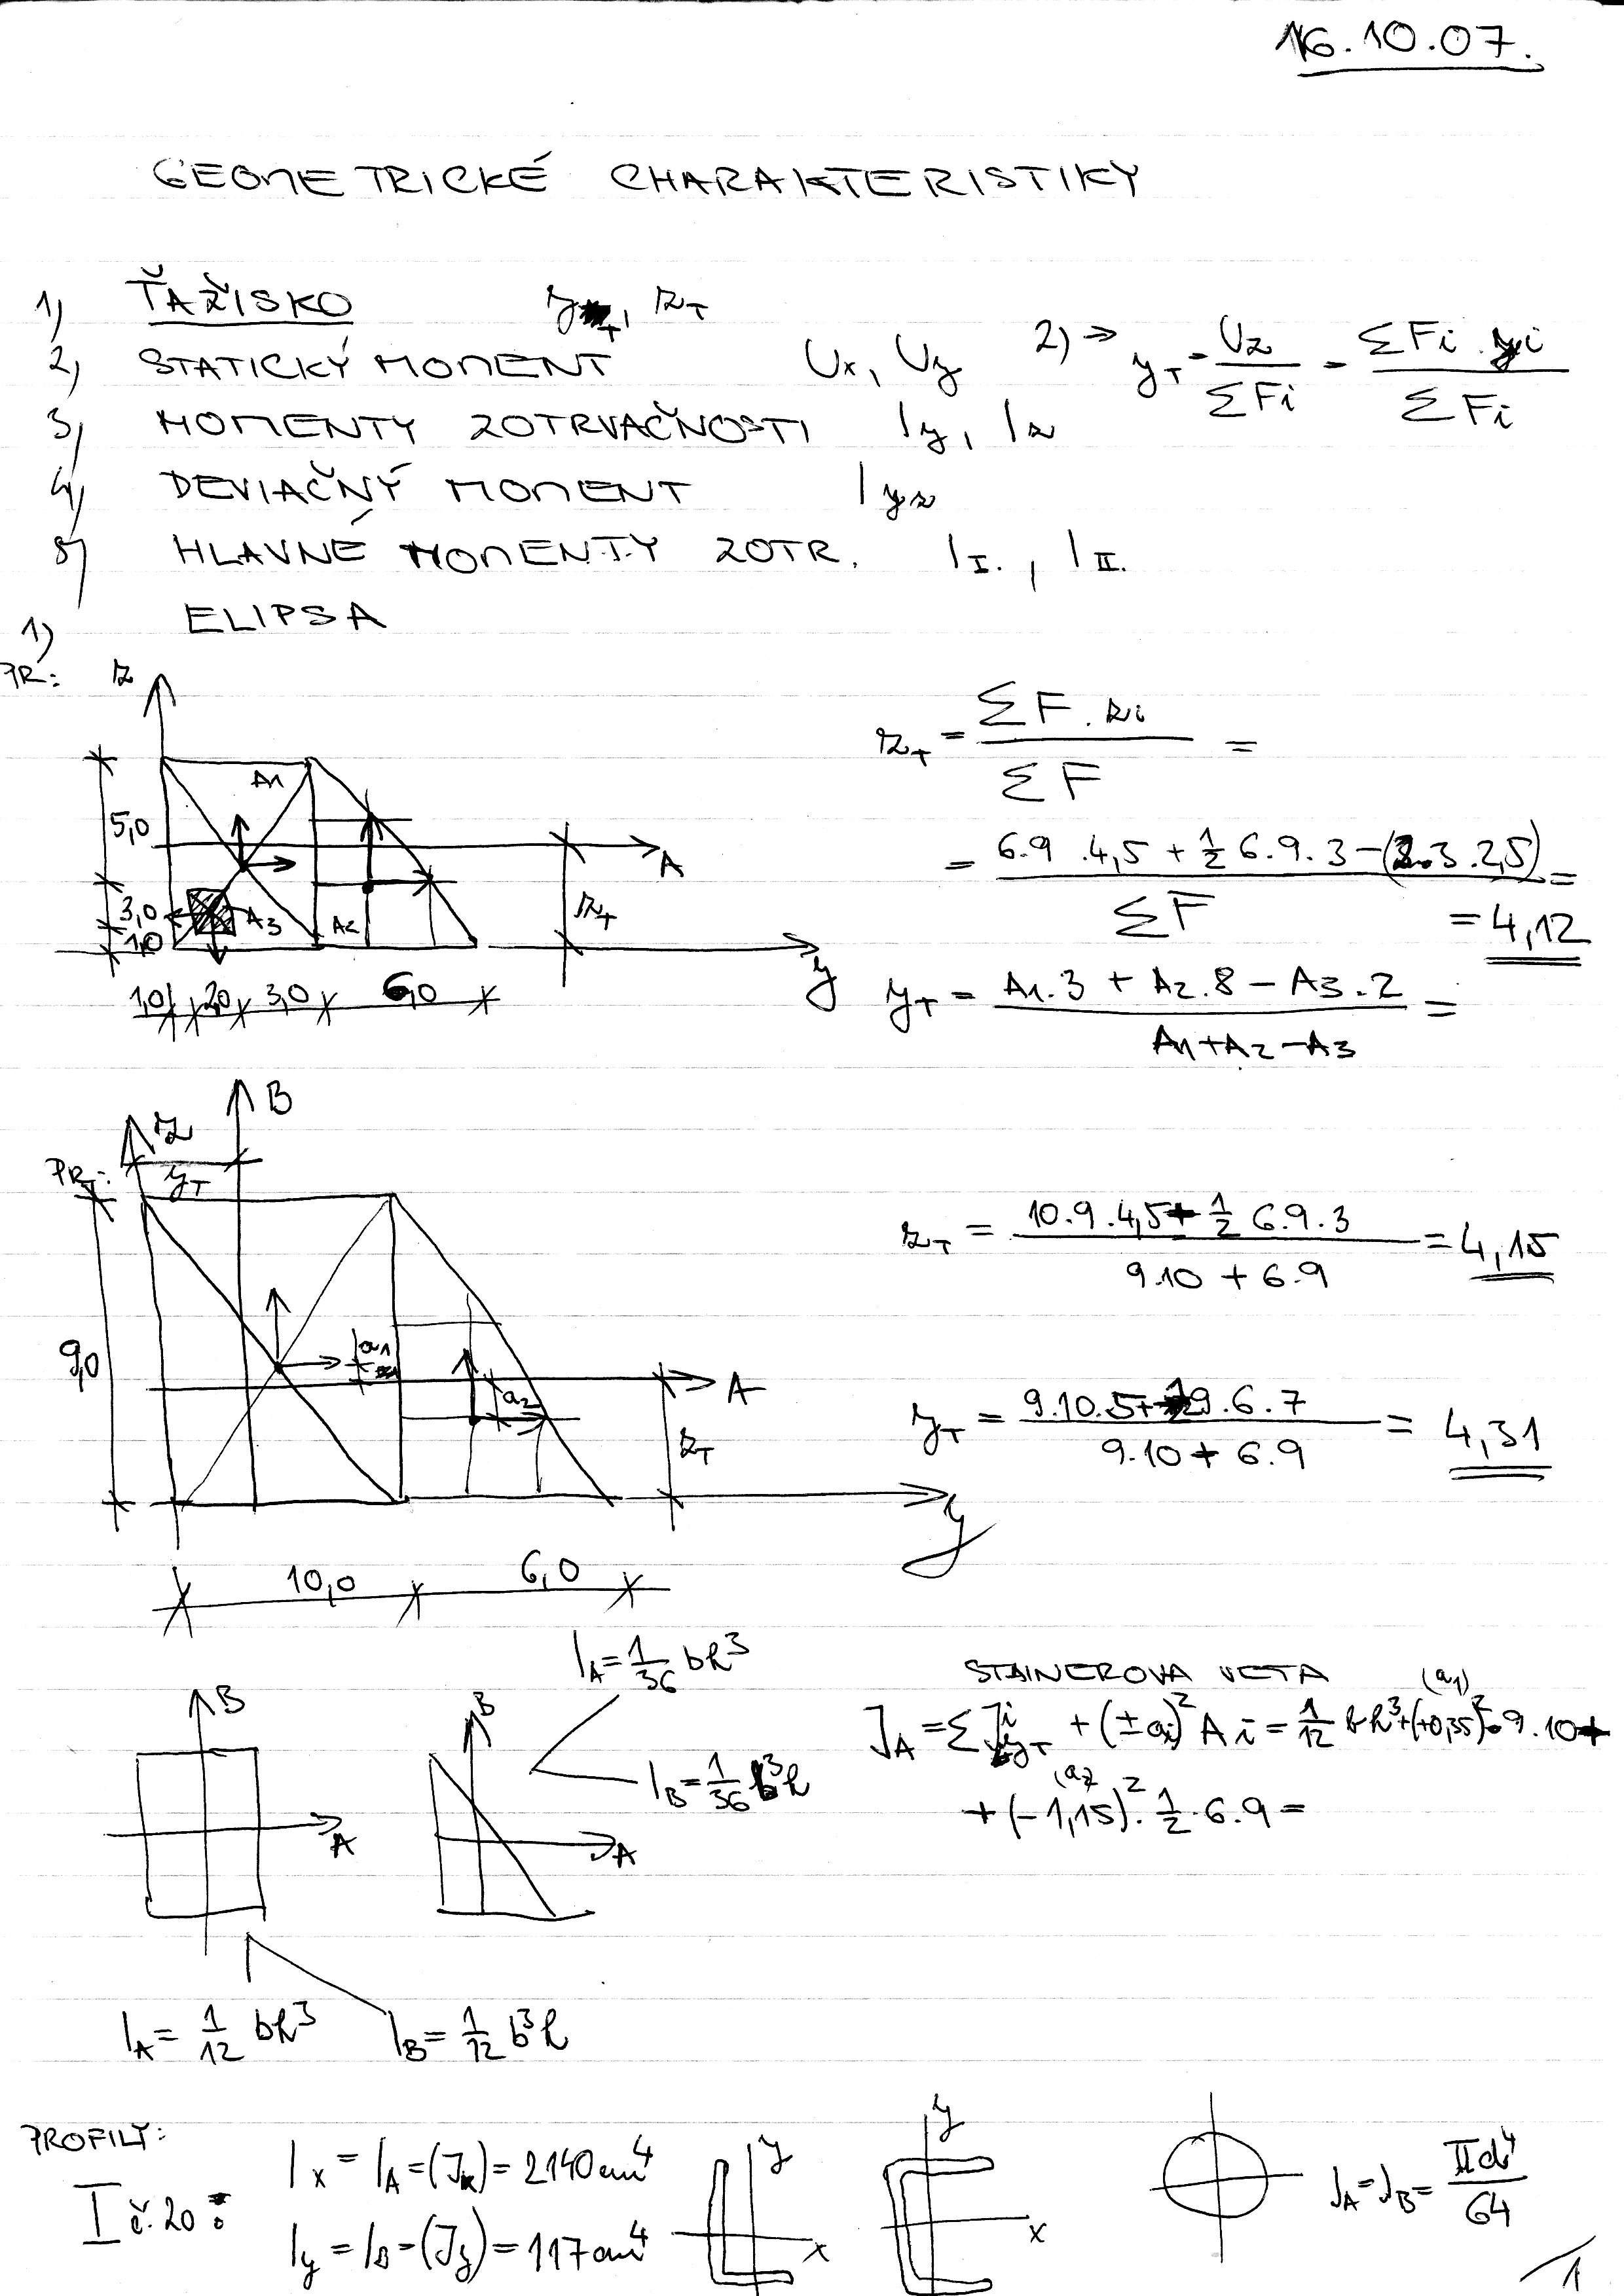 16.10.07.
GEOMETRICKÉ CHARAKTERISTIKY
1) ŤAŽISKO y_T, z_T
2) STATICKÝ MOMENT U_x, U_y 2) ⇒ y_T = U_z / ΣFi = ΣFi . yi / ΣFi
3) MOMENTY ZOTRVAČNOSTI I_y, I_z
4) DEVIAČNÝ MOMENT I_yz
5) HLAVNÉ MOMENTY ZOTR. I_I. , I_II.
ELIPSA
1)
PR: z
A1
5,0
A
3,0
A3 A2
z_T
1,0
y
1,0 2,0 3,0 6,0
z_T = ΣF . zi / ΣF =
= 6.9 .4,5 + 1/2 6.9.3 - (2.3.2,5) / ΣF =
= 4,12
y_T = A1.3 + A2.8 - A3.2 / A1+A2-A3 =
B
z
PR: y_T
9,0
a1
A
a2
z_T
y
10,0 6,0
z_T = 10.9.4,5 + 1/2 6.9.3 / 9.10 + 6.9 = 4,15
y_T = 9.10.5+ 9.6.7 / 9.10 + 6.9 = 4,31
I_A = 1/36 bh³
B
B
I_B = 1/36 b³h
A
A
STAINEROVA VETA
(a1)
J_A = ΣJ^i_yT + (±ai)² Ai = 1/12 bh³+(+0,35)².9.10+
(a2
+(-1,15)². 1/2 .6.9 =
I_A = 1/12 bh³ I_B = 1/12 b³h
PROFILY:
I č.20 :
I_x = I_A = (J_x) = 2140 cm⁴
I_y = I_B = (J_y) = 117 cm⁴
y
x
y
x
J_A = J_B = Πd⁴ / 64
1